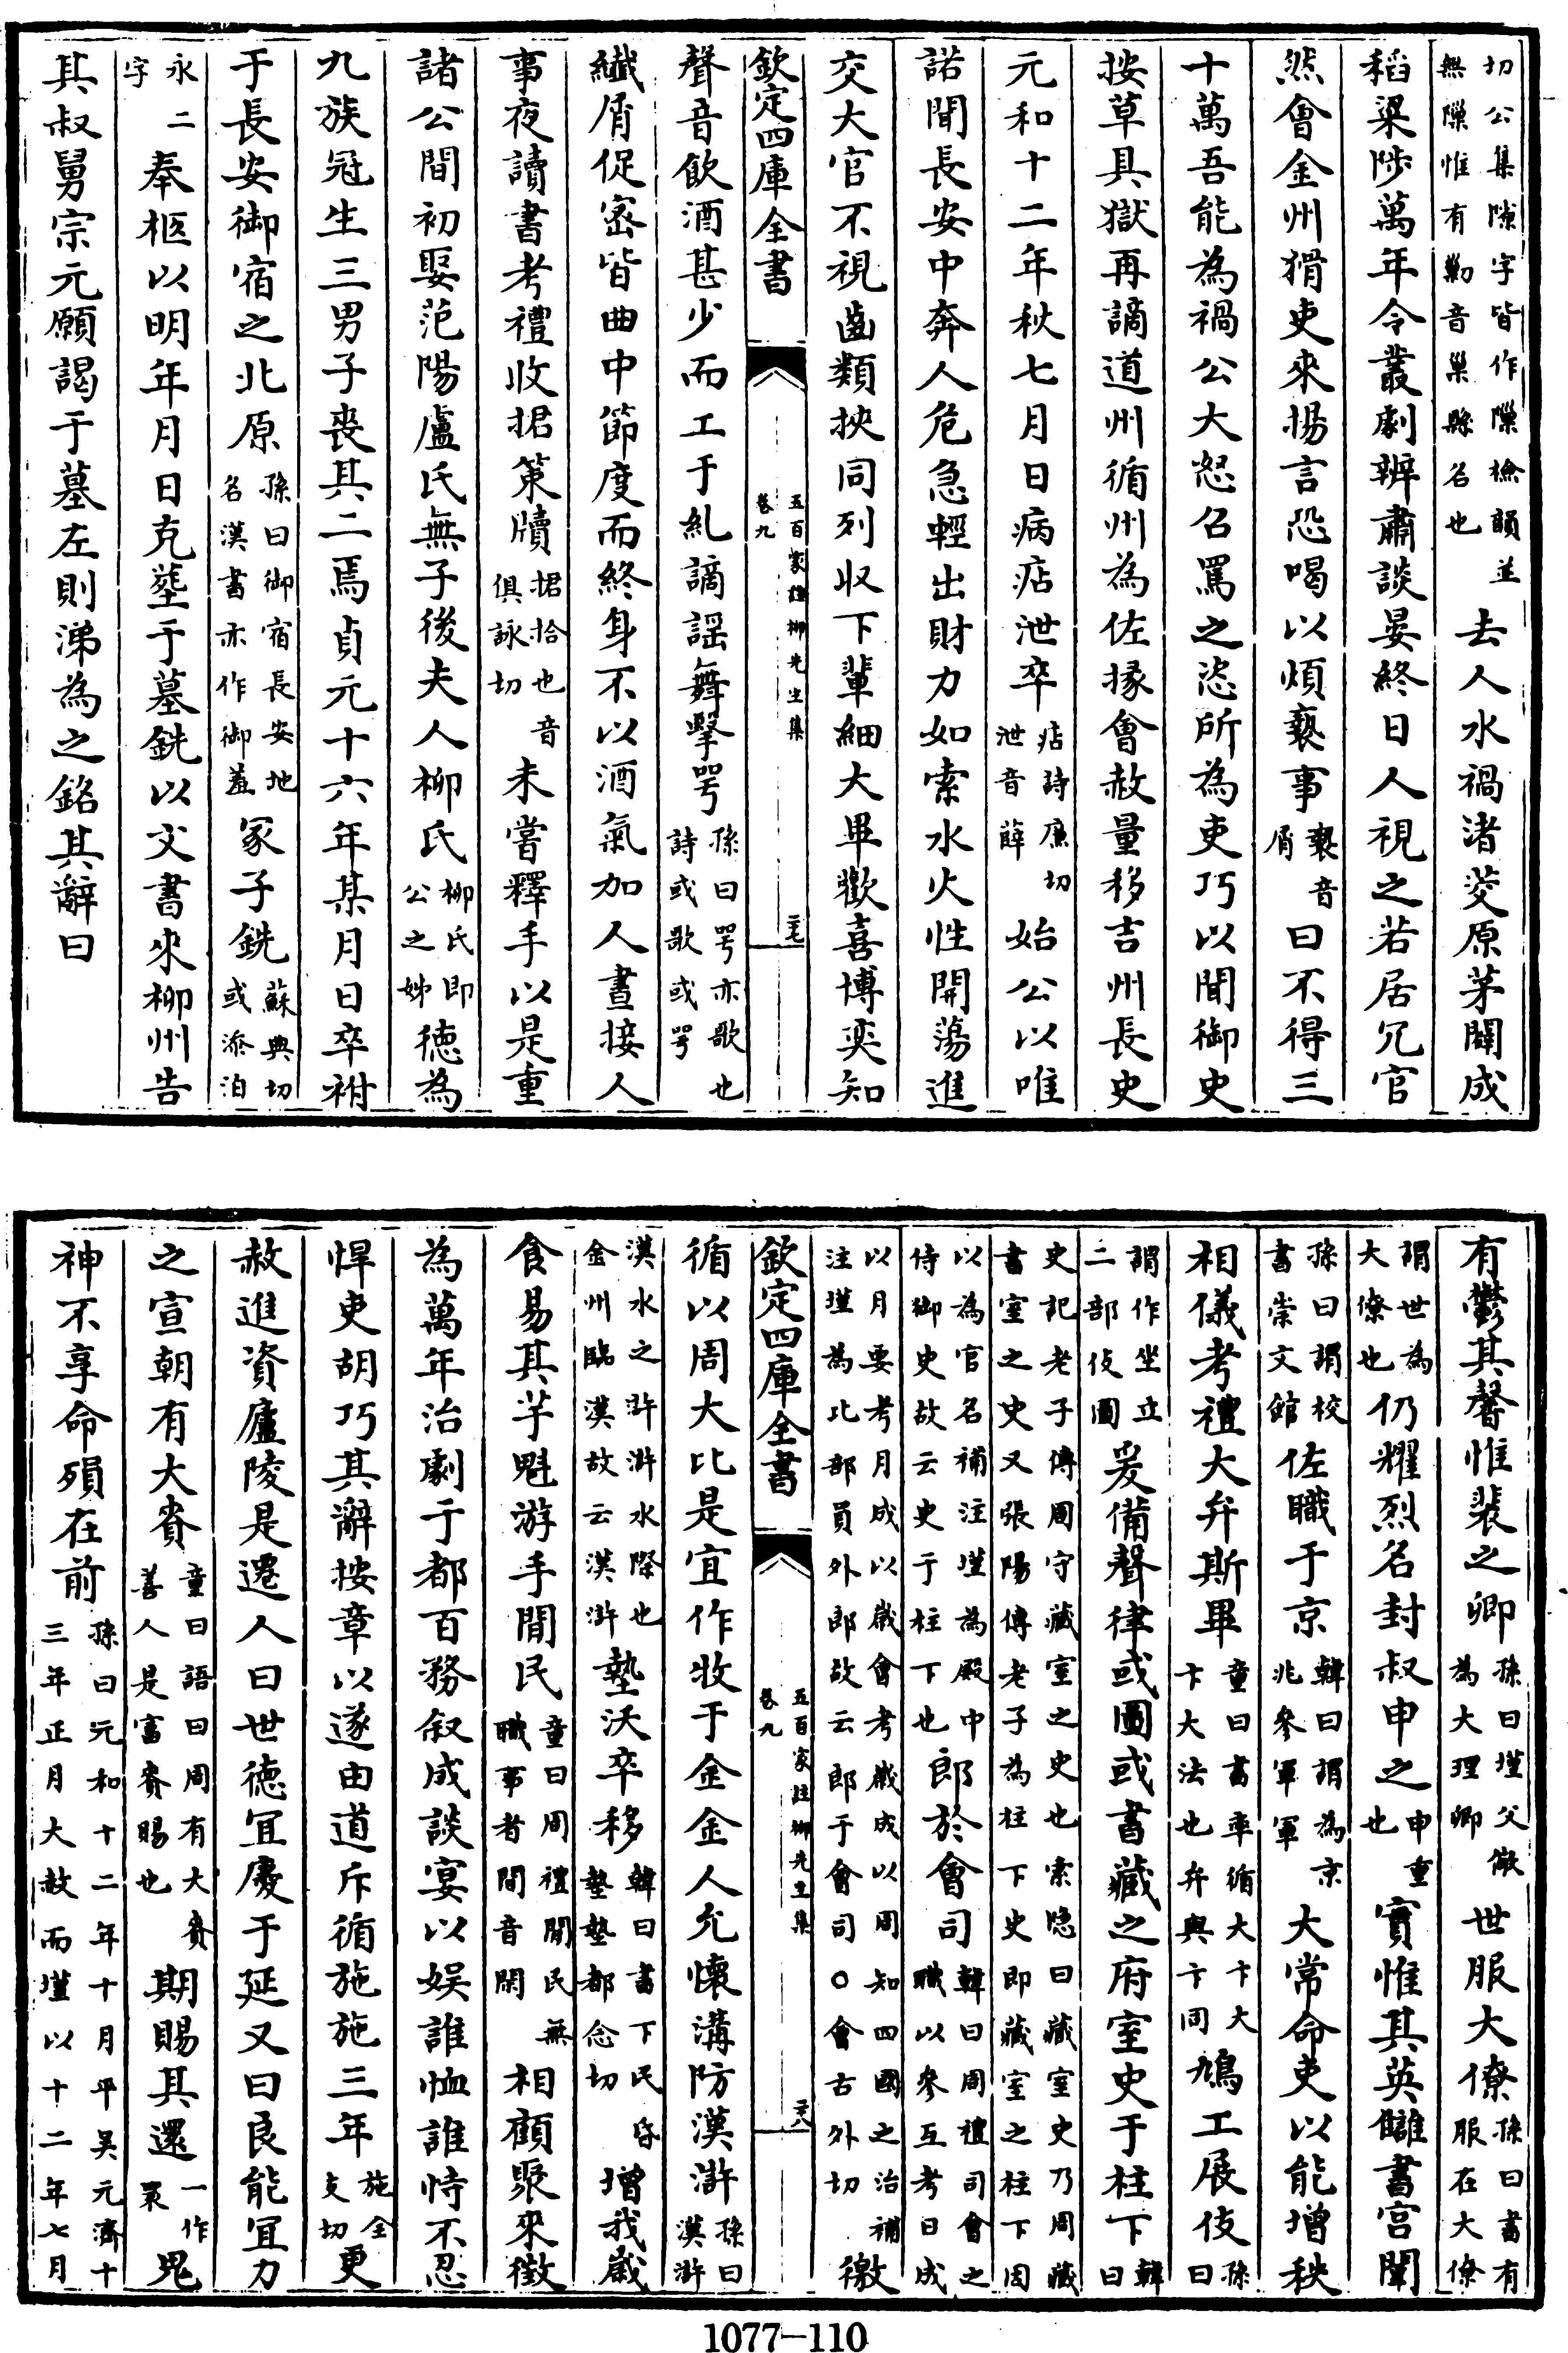 切公集隙字皆作隟檢韻並無隟惟有𨞫音巢縣名也去人水禍渚茭原茅闢成
稻粱陟萬年令叢劇辨肅談宴終日人視之若居冗官
然會金州猾吏來揚言恐喝以煩褻事褻音屑曰不得三
十萬吾能為禍公大怒召罵之恣所為吏巧以聞御史
按章具獄再謫道州循州為佐掾會赦量移吉州長史
元和十二年秋七月日病痁泄卒痁詩廉切泄音薛始公以唯
諾聞長安中奔人危急輕出財力如索水火性開蕩進
交大官不視齒類挾同列收下輩細大畢歡喜博奕知
欽定四庫全書
五百家註柳先生集
卷九
二七
聲音飲酒甚少而工于糺謫謡舞擊咢孫曰咢亦歌也詩或歌或咢
纎屑促密皆曲中節度而終身不以酒氣加人晝接人
事夜讀書考禮收捃䇿牘捃拾也音俱詠切未嘗釋手以是重
諸公間初娶范陽盧氏無子後夫人柳氏柳氏即公之姊徳為
九族冠生三男子喪其二焉貞元十六年某月日卒祔
于長安御宿之北原孫曰御宿長安地名漢書亦作御羞冢子銑蘇典切或添泊
永二字奉柩以明年月日克塟于墓銑以文書來柳州告
其叔舅宗元願謁于墓左則涕為之銘其辭曰
有鬱其馨惟裴之卿孫曰墐父儆為大理卿世服大僚孫曰書有服在大僚
謂世為大僚也仍耀烈名封叔申之申重也實惟其英讎書宫闈
孫曰謂校書崇文館佐職于京韓曰謂為京兆參軍軍大常命吏以能增秩
相儀考禮大弁斯畢童曰書率循大卞大卞大法也弁與卞同鳩工展伎孫曰
謂作坐立二部伎圖爰備聲律或圖或書藏之府室史于柱下韓曰
史記老子傳周守藏室之史也索隐曰藏室史乃周藏書室之史又張陽傳老子為柱下史即藏室之柱下因
以為官名補注墐為殿中侍御史故云史于柱下也郎於會司韓曰周禮司會之職以參互考日成
以月要考月成以歲會考歲成以周知四國之治補注墐為比部員外郎故云郎于會司○會古外切徼
欽定四庫全書
五百家註柳先生集
卷九
二八
循以周大比是宜作牧于金金人允懷溝防漢滸孫曰漢滸
漢水之滸滸水際也金州臨漢故云漢滸墊沃卒移韓曰書下民昏墊墊都念切增我歲
食易其芋魁游手閒民童曰周禮閒民無職事者閒音閑相顧聚來徵
為萬年治劇于都百務叙成談宴以娱誰恤誰恃不忍
悍吏胡巧其辭按章以遂由道斥循施施三年施全支切更
赦進資廬陵是遷人曰世徳宜慶于延又曰良能宜力
之宣朝有大賚童曰語曰周有大賚善人是富賚賜也期賜其還一作衆鬼
神不享命殞在前孫曰元和十二年十月平吴元濟十三年正月大赦而墐以十二年七月
1077—110